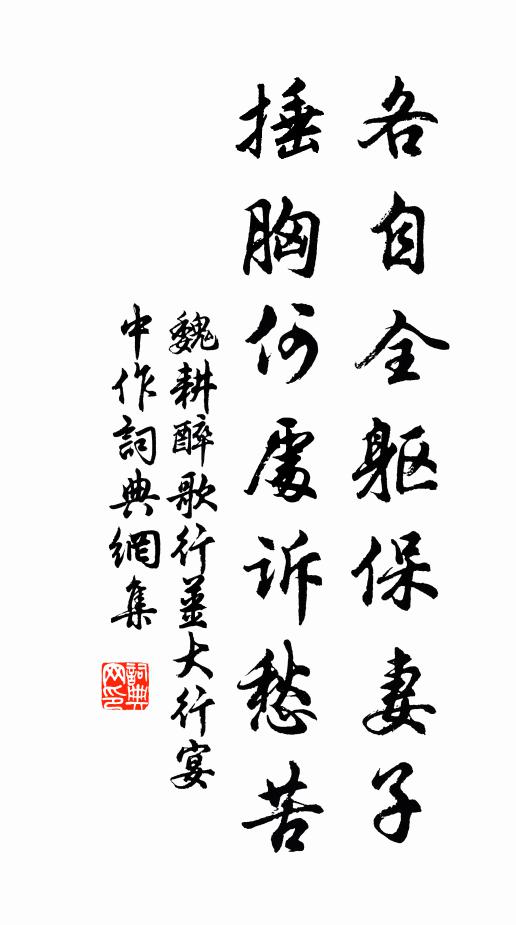 各自全躯保妻子
捶胸何處诉愁苦
魏耕醉歌行薑大行宴
中作詞典網集
詞典网印